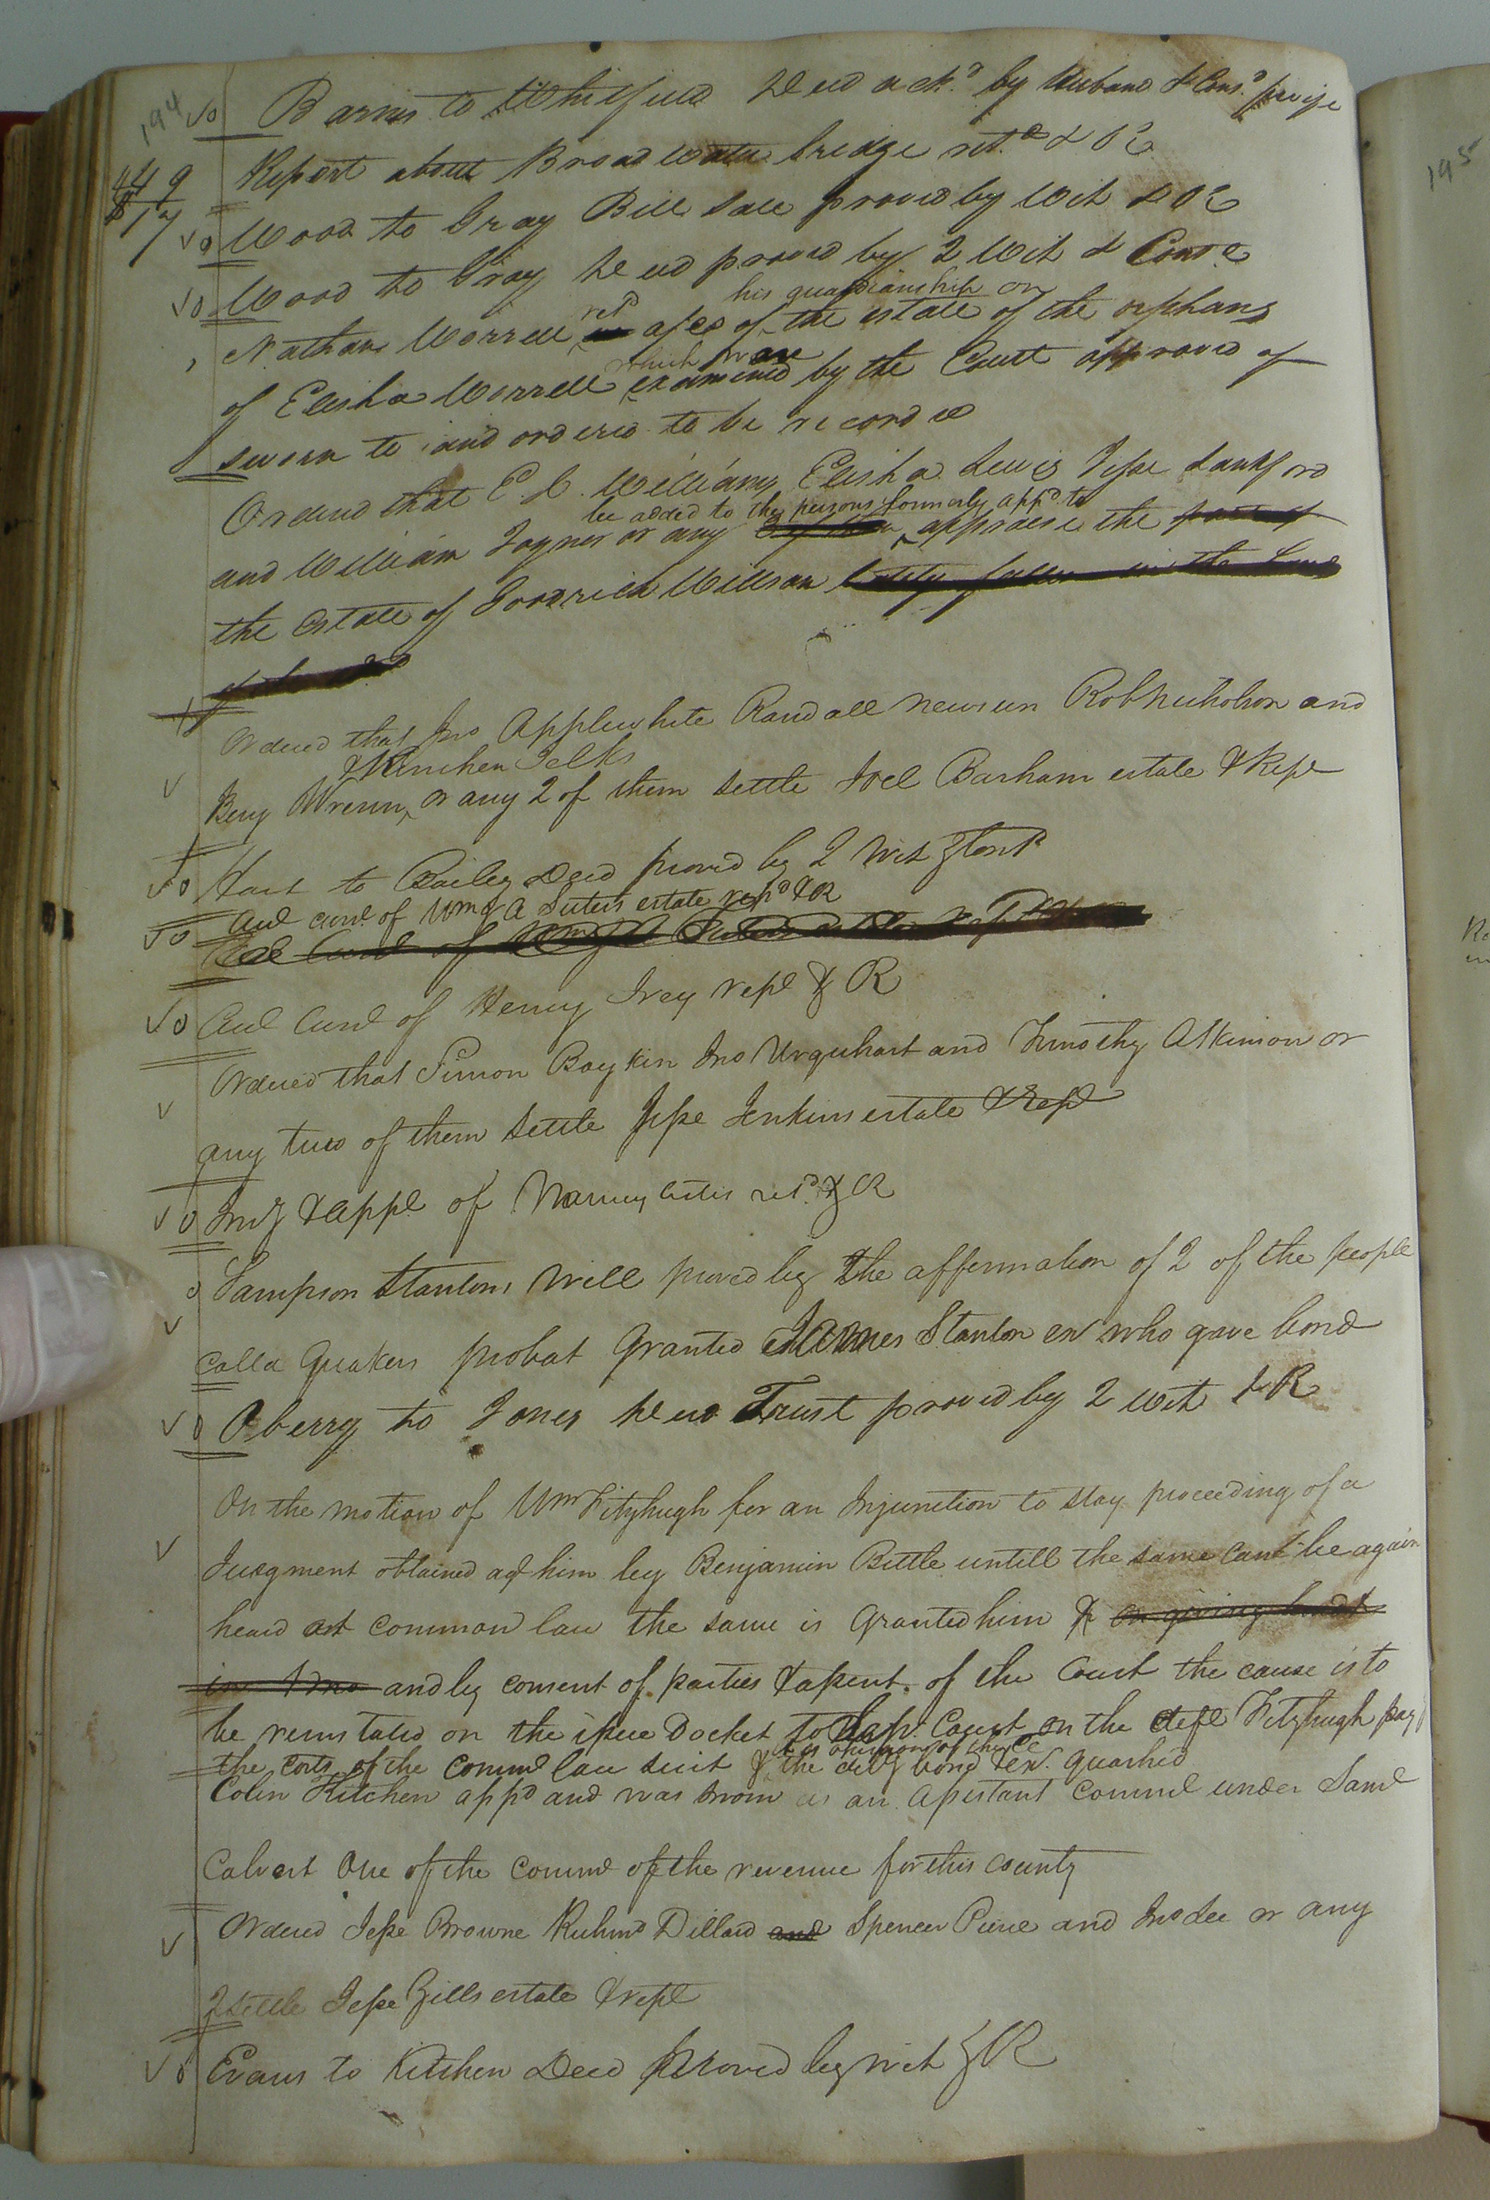 194
Barns to Whitfield Deed ackd. by Husband & Cons. privye
449
17
Report about Broadwater bridge retd & O R
Wood to Gray Bill Sale proved by Wit & O R
Wood to Gray Deed proved by 2 Wit & Contd
his guardianship on
Nathan Worrell retd acco of the estate of the orphans
which ware
of Elisha Worrell examined by the Court approved of
sworn to and ordered to be recorded
Ordered that E L Williams Elisha Lewis Jesse Lankford
be added to the persons formerly appd. to
and William Joyner or any appraise the
the estate of Goodrich Willson
Ordered that Jno Applewhite Randall Newsum Rob Nicholson and
& Kinchen Jelks
Benj Wrenn, or any 2 of them settle Joel Barham estate & Rept
Hart to Bailey Deed proved by 2 Wit & Contd
Aud Curnt of Wm & A Suters estate retd & R
Aud Curnt of Henry Ivey rept & R
Ordered that Simon Boykin Jno Urquhart and Timothy Atkinson or
any two of them settle Jesse Jenkins estate & Rept
Invy & Appt of Nancy Estis retd. & R
Sampson Stantons Will proved by the affermation of 2 of the people
calld Quakers probat Granted James Stanton exr who gave bond
Oberry to Jones Deed Trust proved by 2 Wit & R
On the motion of Wm Fitzhugh for an Injunction to stay proceeding of a
Judgment obtained agt him by Benjamin Bittle untill the same cant be again
heard at common law the same is Granted him & on giving bond &
and by consent of parties & assent of the Court the cause is to
be reinstated on the issue Docket to Court on the deft Fitzhugh pay
it is opinion of the Ct
the costs of the commn law suit & the delvy bond & exn. quashed
Colin Kitchen appd and was sworn as an assistant Commr under Saml
Calvert One of the Commr of the revenue for this County
Ordered Jesse Browne Richmd Dillard and Spencer Pierce and Jno Lee or any
2 settle Jesse Gills estate & rept
Evans to Kitchen Deed proved by Wit & R
195